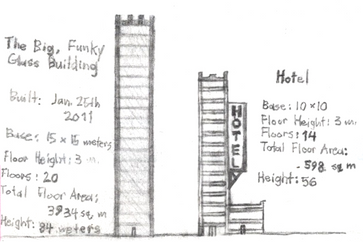 The Big, Funky
Glass Building
Built: Jan. 25th
2011
Base: 15 x 15 meters
Floor Height: 3 m.
Floors: 20
Total Floor Area:
3934 sq. m
Height: 84 meters
HOTEL
Hotel
Base: 10 x 10
Floor Height: 3 m.
Floors: 14
Total Floor Area:
598 sq m
Height: 56